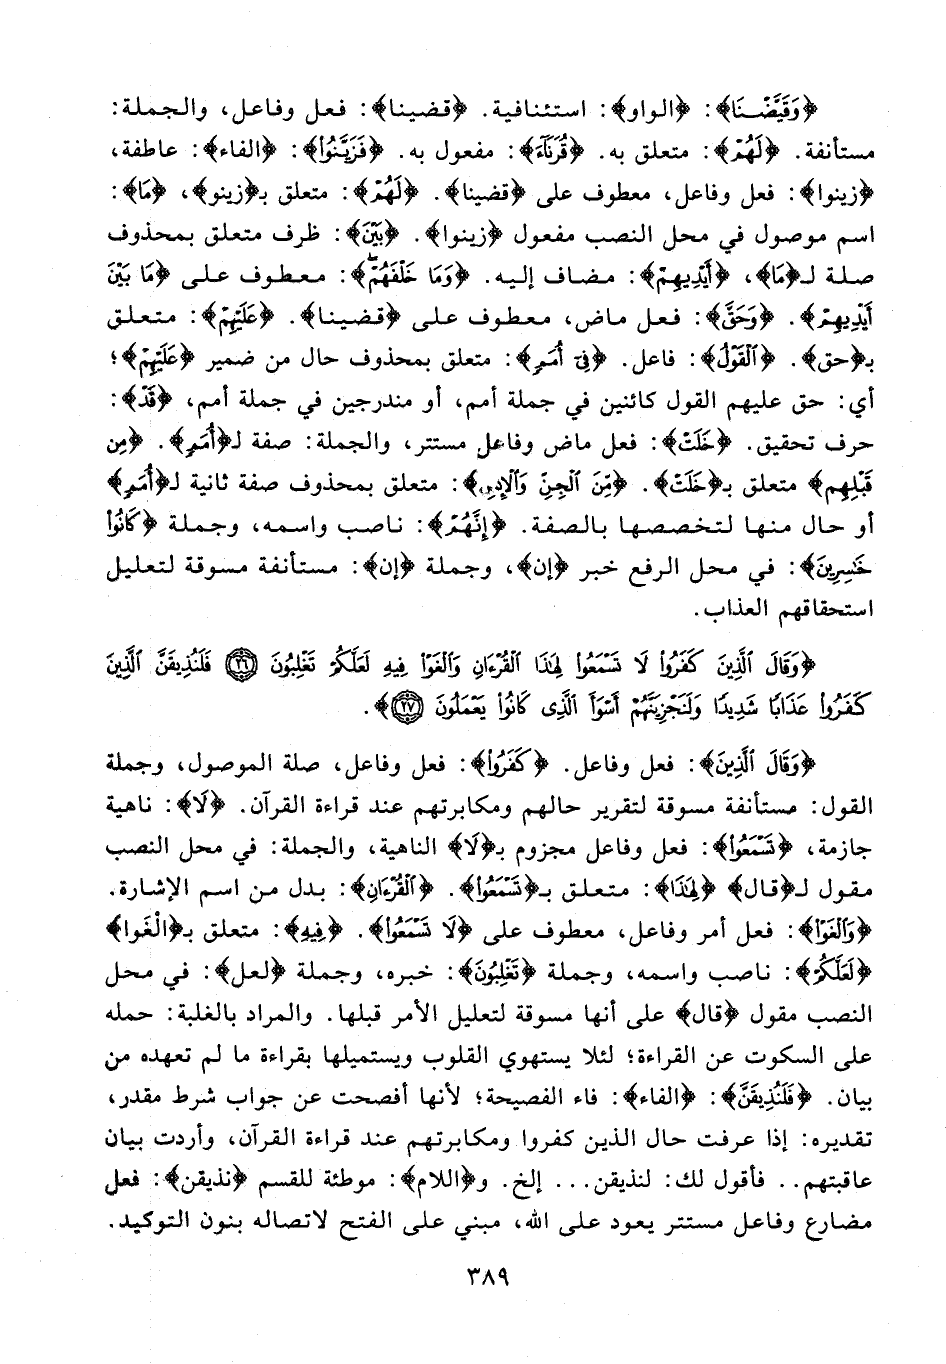 ﴿وَقَيَّضْنَا﴾: ﴿الواو﴾: استئنافية. ﴿قضينا﴾: فعل وفاعل، والجملة:
مستأنفة. ﴿لَهُمْ﴾: متعلق به. ﴿قُرَنَآءَ﴾: مفعول به. ﴿فَزَيَّنُواْ﴾: ﴿الفاء﴾: عاطفة،
﴿زينوا﴾: فعل وفاعل، معطوف على ﴿قضينا﴾. ﴿لَهُمْ﴾: متعلق بـ﴿زينو﴾، ﴿مَا﴾:
اسم موصول في محل النصب مفعول ﴿زينوا﴾. ﴿بَيْنَ﴾: ظرف متعلق بمحذوف
صلة لـ﴿مَا﴾، ﴿أَيْدِيهِمْ﴾: مضاف إليه. ﴿وَمَا خَلْفَهُمْ﴾: معطوف على ﴿مَا بَيْنَ
أَيْدِيهِمْ﴾. ﴿وَحَقَّ﴾: فعل ماض، معطوف على ﴿قضينا﴾. ﴿عَلَيْهِمْ﴾: متعلق
بـ﴿حق﴾. ﴿ٱلْقَوْلُ﴾: فاعل. ﴿فِىٓ أُمَمٍ﴾: متعلق بمحذوف حال من ضمير ﴿عَلَيْهِمْ﴾؛
أي: حق عليهم القول كائنين في جملة أمم، أو مندرجين في جملة أمم، ﴿قَدْ﴾:
حرف تحقيق. ﴿خَلَتْ﴾: فعل ماض وفاعل مستتر، والجملة: صفة لـ﴿أُمَمٍ﴾. ﴿مِن
قَبْلِهِم﴾ متعلق بـ﴿خَلَتْ﴾. ﴿مِّنَ ٱلْجِنِّ وَٱلْإِنسِ﴾: متعلق بمحذوف صفة ثانية لـ﴿أُمَمٍ﴾
أو حال منها لتخصصها بالصفة. ﴿إِنَّهُمْ﴾: ناصب واسمه، وجملة ﴿كَانُواْ
خَٰسِرِينَ﴾: في محل الرفع خبر ﴿إن﴾، وجملة ﴿إن﴾: مستأنفة مسوقة لتعليل
استحقاقهم العذاب.
﴿وَقَالَ ٱلَّذِينَ كَفَرُواْ لَا تَسْمَعُواْ لِهَٰذَا ٱلْقُرْءَانِ وَٱلْغَوْاْ فِيهِ لَعَلَّكُمْ تَغْلِبُونَ ۝٢٦ فَلَنُذِيقَنَّ ٱلَّذِينَ
كَفَرُواْ عَذَابًا شَدِيدًا وَلَنَجْزِيَنَّهُمْ أَسْوَأَ ٱلَّذِى كَانُواْ يَعْمَلُونَ ۝٢٧﴾.
﴿وَقَالَ ٱلَّذِينَ﴾: فعل وفاعل. ﴿كَفَرُواْ﴾: فعل وفاعل، صلة الموصول، وجملة
القول: مستأنفة مسوقة لتقرير حالهم ومكابرتهم عند قراءة القرآن. ﴿لَا﴾: ناهية
جازمة، ﴿تَسْمَعُواْ﴾: فعل وفاعل مجزوم بـ﴿لَا﴾ الناهية، والجملة: في محل النصب
مقول لـ﴿قال﴾ ﴿لِهَٰذَا﴾: متعلق بـ﴿تَسْمَعُواْ﴾. ﴿ٱلْقُرْءَانِ﴾: بدل من اسم الإشارة.
﴿وَٱلْغَوْاْ﴾: فعل أمر وفاعل، معطوف على ﴿لَا تَسْمَعُواْ﴾. ﴿فِيهِ﴾: متعلق بـ﴿الْغَوا﴾
﴿لَعَلَّكُمْ﴾: ناصب واسمه، وجملة ﴿تَغْلِبُونَ﴾: خبره، وجملة ﴿لعل﴾: في محل
النصب مقول ﴿قال﴾ على أنها مسوقة لتعليل الأمر قبلها. والمراد بالغلبة: حمله
على السكوت عن القراءة؛ لئلا يستهوي القلوب ويستميلها بقراءة ما لم تعهده من
بيان. ﴿فَلَنُذِيقَنَّ﴾: ﴿الفاء﴾: فاء الفصيحة؛ لأنها أفصحت عن جواب شرط مقدر،
تقديره: إذا عرفت حال الذين كفروا ومكابرتهم عند قراءة القرآن، وأردت بيان
عاقبتهم.. فأقول لك: لنذيقن... إلخ. و﴿اللام﴾: موطئة للقسم ﴿نذيقن﴾: فعل
مضارع وفاعل مستتر يعود على الله، مبني على الفتح لاتصاله بنون التوكيد.
٣٨٩